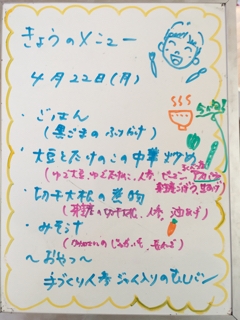 きょうのメニュー
4月22日(月)
・ごはん
(黒ごまのふりかけ)
・大豆とたけのこの中華炒め
(ゆで大豆、ゆでたけのこ、人参、ピーマン
・切干大根の煮物
切干大根、人参、油あげ)
・みそ汁
じゃがいも、
〜おやつ〜
手づくり人参ジャム入りのむしパン